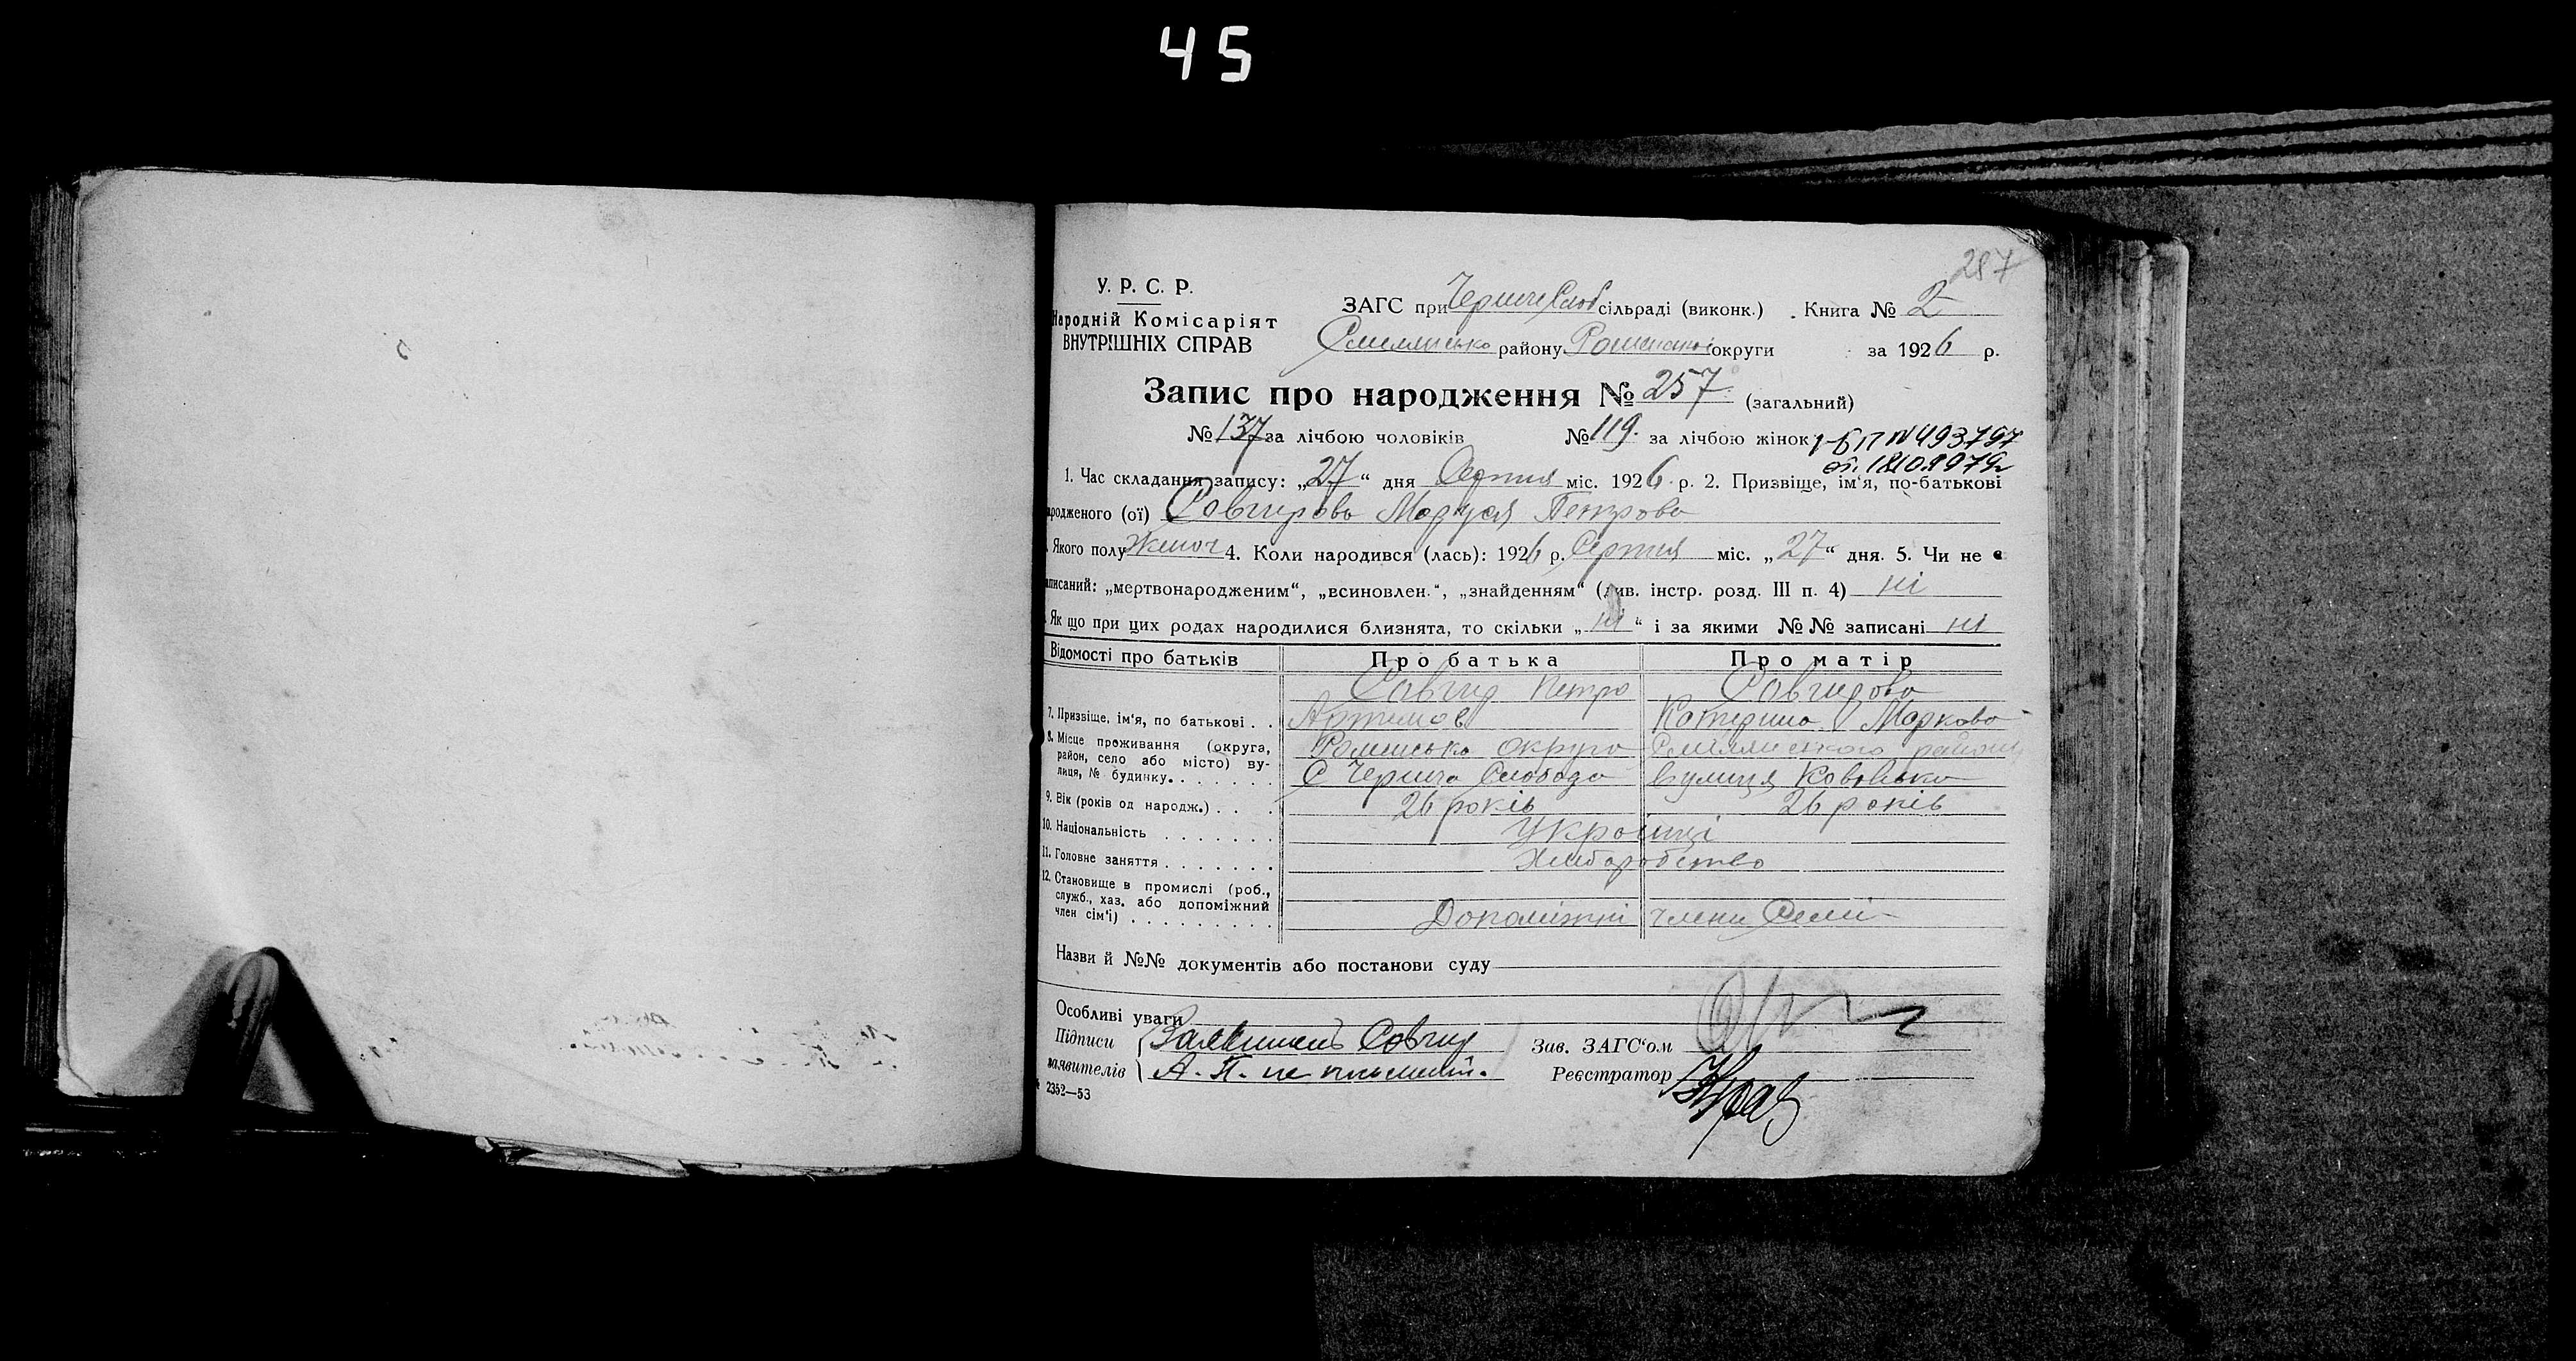 45
257
У. Р. С. Р.
Народній Комісаріят
ВНУТРІШНІХ СПРАВ
ЗАГС при сільраді (виконк.) Книга № 2
району округи за 1926 р.
Запис про народження № 257 (загальний)
№ 137 за лічбою чоловіків № 119. за лічбою жінок
1. Час складання запису: „27“ дня Серпня міс. 1926 р. 2. Призвіще, ім'я, по-батькові
народженого (ої) Маруся Петрова
Якого полу Жіноч 4. Коли народився (лась): 1926 р. Серпня міс. „27“ дня. 5. Чи не є
записаний: „мертвонародженим“, „всиновлен.“, „знайденням“ (див. інстр. розд. III п. 4) ні
Як що при цих родах народилися близнята, то скільки „ні“ і за якими №№ записані ні
Відомості про батьків Про батька Про матір
Петро
7. Призвіще, ім'я, по батькові . . Артемов Катерина Маркова
8. Місце проживання (округа, район, село або місто) вулиця, № будинку. Роменська округа району
С Слобода вулиця
9. Вік (років од народж.) . . . 26 років 26 років
10. Національність . . . . . . . Українці
11. Головне заняття . . . . . . . Хліборобство
12. Становище в промислі (роб., служб., хаз. або допоміжний член сім'ї) . . . . . . . . . Допоміжні члени Семі
Назви й №№ документів або постанови суду
Особливі уваги
Підписи Совгир Зав. ЗАГС'ом
заявителів А. П. не Реєстратор
2352—53